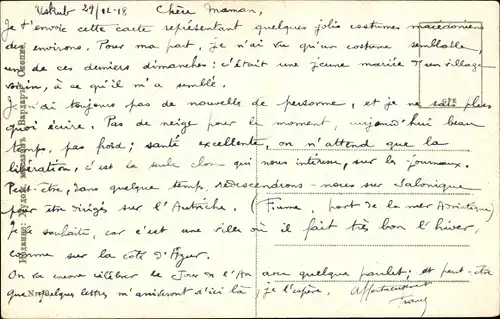 Uskub 29/12-18 Chère Maman,
Je t'envoie cette carte représentant quelques jolis costumes macédoniens
des environs. Pour ma part, je n'ai vu qu'un costume semblable,
un de ces derniers dimanches : c'était une jeune mariée d'un village
voisin, à ce qu'il m'a semblé.
Je n'ai toujours pas de nouvelle de personne, et je ne sais plus
quoi écrire. Pas de neige pour le moment, aujourd'hui beau
temps, pas froid ; santé excellente, on n'attend que la
libération, c'est la seule chose qui nous intéresse, sur les journaux.
Peut-être, dans quelque temps, redescendrons-nous sur Salonique
pour être dirigés sur l'Autriche. (Fiume, port de la mer Adriatique)
Je le souhaite, car c'est une ville où il fait très bon l'hiver,
comme sur la côte d'Azur.
On va encore célébrer le Jour de l'An avec quelque poulet ; et peut-être
que quelques lettres m'arriveront d'ici là, je l'espère. Affectueusement
Издание: Кардарѝ Скопие.